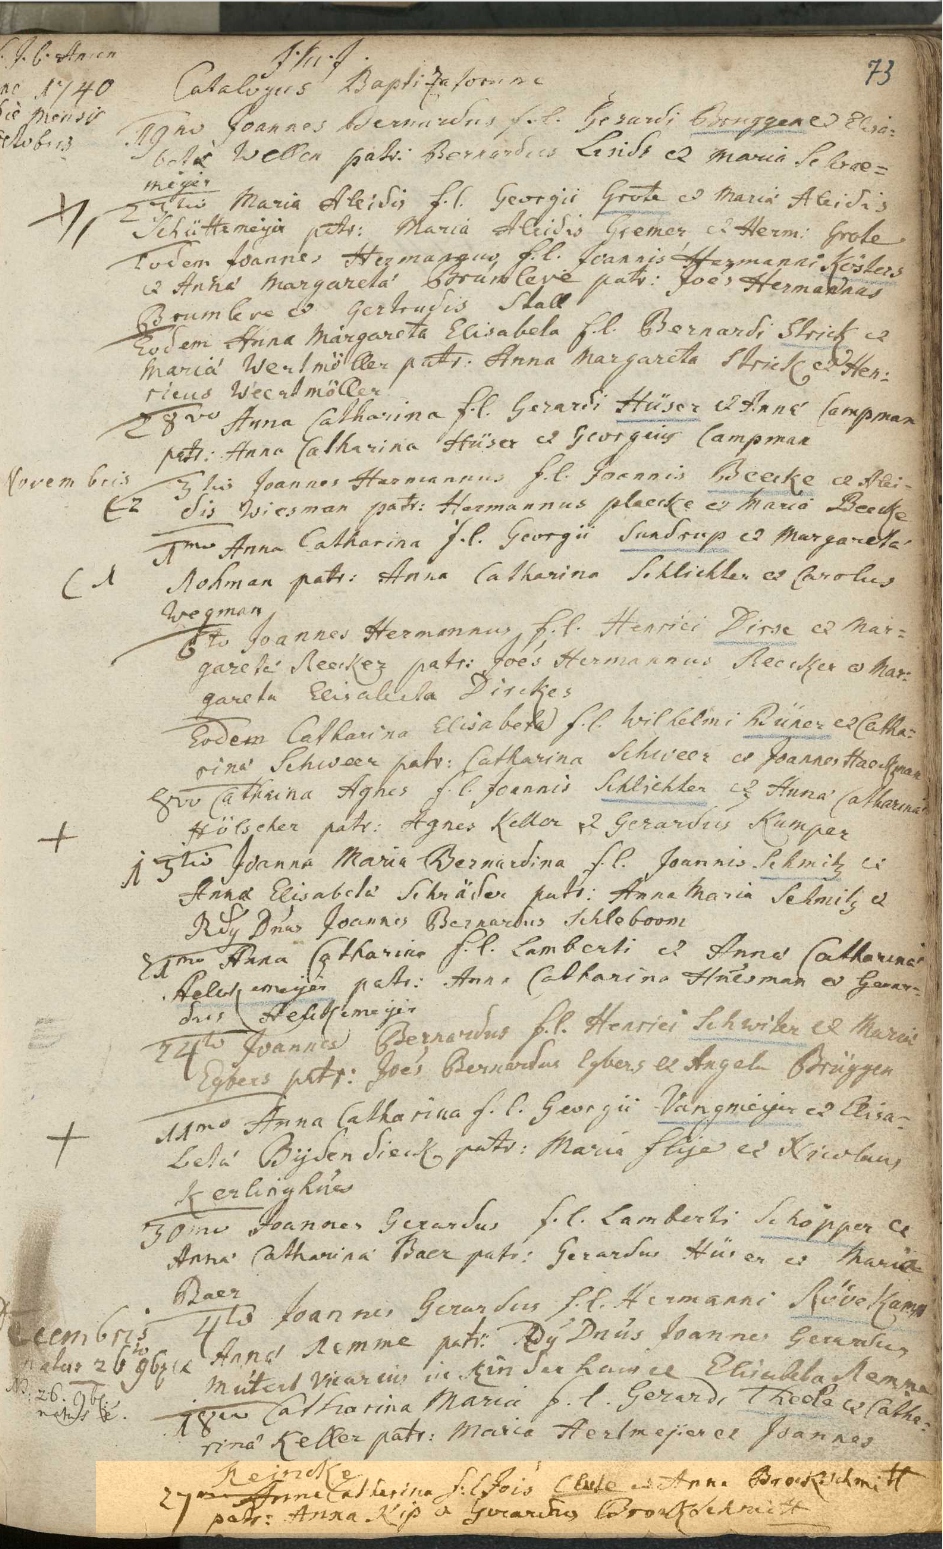 J. M. J.
73
Catalogus Baptizatorum
1740
mensis
octobris
19no Joannes Bernardus f.l. Gerardi Bruggen et Elisa=
betæ Wellen patr: Bernardus Lindt et Maria Schroe=
meijer
23tio Maria Aleidis f.l. Georgii Grote et Maria Aleidis
Schüttemeijer patr: Maria Aleidis Gremer et Herm: Grote
Eodem Joannes Hermannus f.l. Joannis Hermanni Kösters
et Anna Margareta Brumleve patr: Joes Hermannus
Brumleve et Gertrudis Stall
Eodem Anna Margareta Elisabeta f.l. Bernardi Strick et
Maria Wertmöller patr: Anna Margareta Strick et Hen:
ricus Weertmöller
28vo Anna Catharina f.l. Gerardi Hüser et Anna Campman
patr: Anna Catharina Hüser et Georgius Campman
Novembris
3tio Joannes Hermannus f.l. Joannis Beecke et Alei=
2 dis Wiesman patr: Hermannus placke et Maria Beecke
1mo Anna Catharina f.l. Georgii Sundrup et Margareta
1 Rohman patr: Anna Catharina Schlichter et Carolus
Wegman
6to Joannes Hermannus f.l. Henrici Dirse et Mar=
gareta Reecker patr: Joes Hermannus Reecker et Mar:
gareta Elisabeta Dirckes
Eodem Catharina Elisabeta f.l. Wilhelmi Büner et Catha=
rina Schweer patr: Catharina Schweer et Joannes Haeckman
8vo Catharina Agnes f.l. Joannis Schlichter et Anna Catharina
Hölscher patr: Agnes Keller et Gerardus Kamper
13tio Joanna Maria Bernardina f.l. Joannis Schmitz et
Anna Elisabeta Schräder patr: Anna Maria Schmitz et
Rdy Dnus Joannes Bernardus Schleboom
21mo Anna Catharina f.l. Lamberti et Anna Catharina
Aelckemeijer patr: Anna Catharina Hüesman et Gerar=
dus Aelckemeijer
24to Joannes Bernardus f.l. Henrici Schwiter et Maria
Egbers patr: Joes Bernardus Egbers et Angela Brüggen
11mo Anna Catharina f.l. Georgii Vangmeijer et Elisa=
beta Bijdendieck patr: Maria Flije et Nicolaus
Kerlinghüs
30mo Joannes Gerardus f.l. Lamberti Schöpper et
Anna Catharina Baer patr: Gerardus Hüser et Maria
Baer
Decembris
4to Joannes Gerardus f.l. Hermanni Rövekamp
natus 26to 9bris
Anna Remme patr: Rdy Dnus Joannes Gerardus
Vicarius in Kinderhaus et Elisabeta Remme
18vo Catharina Maria f.l. Gerardi Theele et Catha=
rina Keller patr: Maria Hertmeijer et Joannes
Reincke
27 Anna Catherina f.l. Jois Cleute et Anna Brockschmitt
patr: Anna Kip et Gerardus Brockschmitt